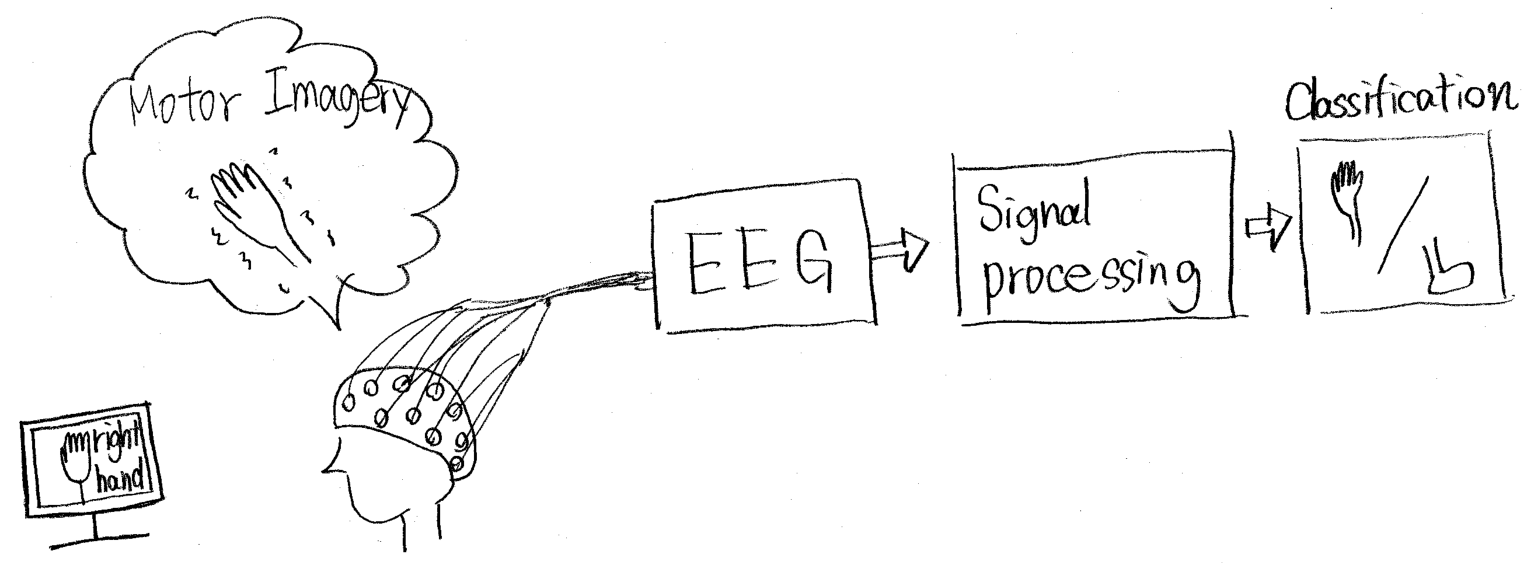 Motor Imagery
right
hand
EEG
Signal
processing
Classification